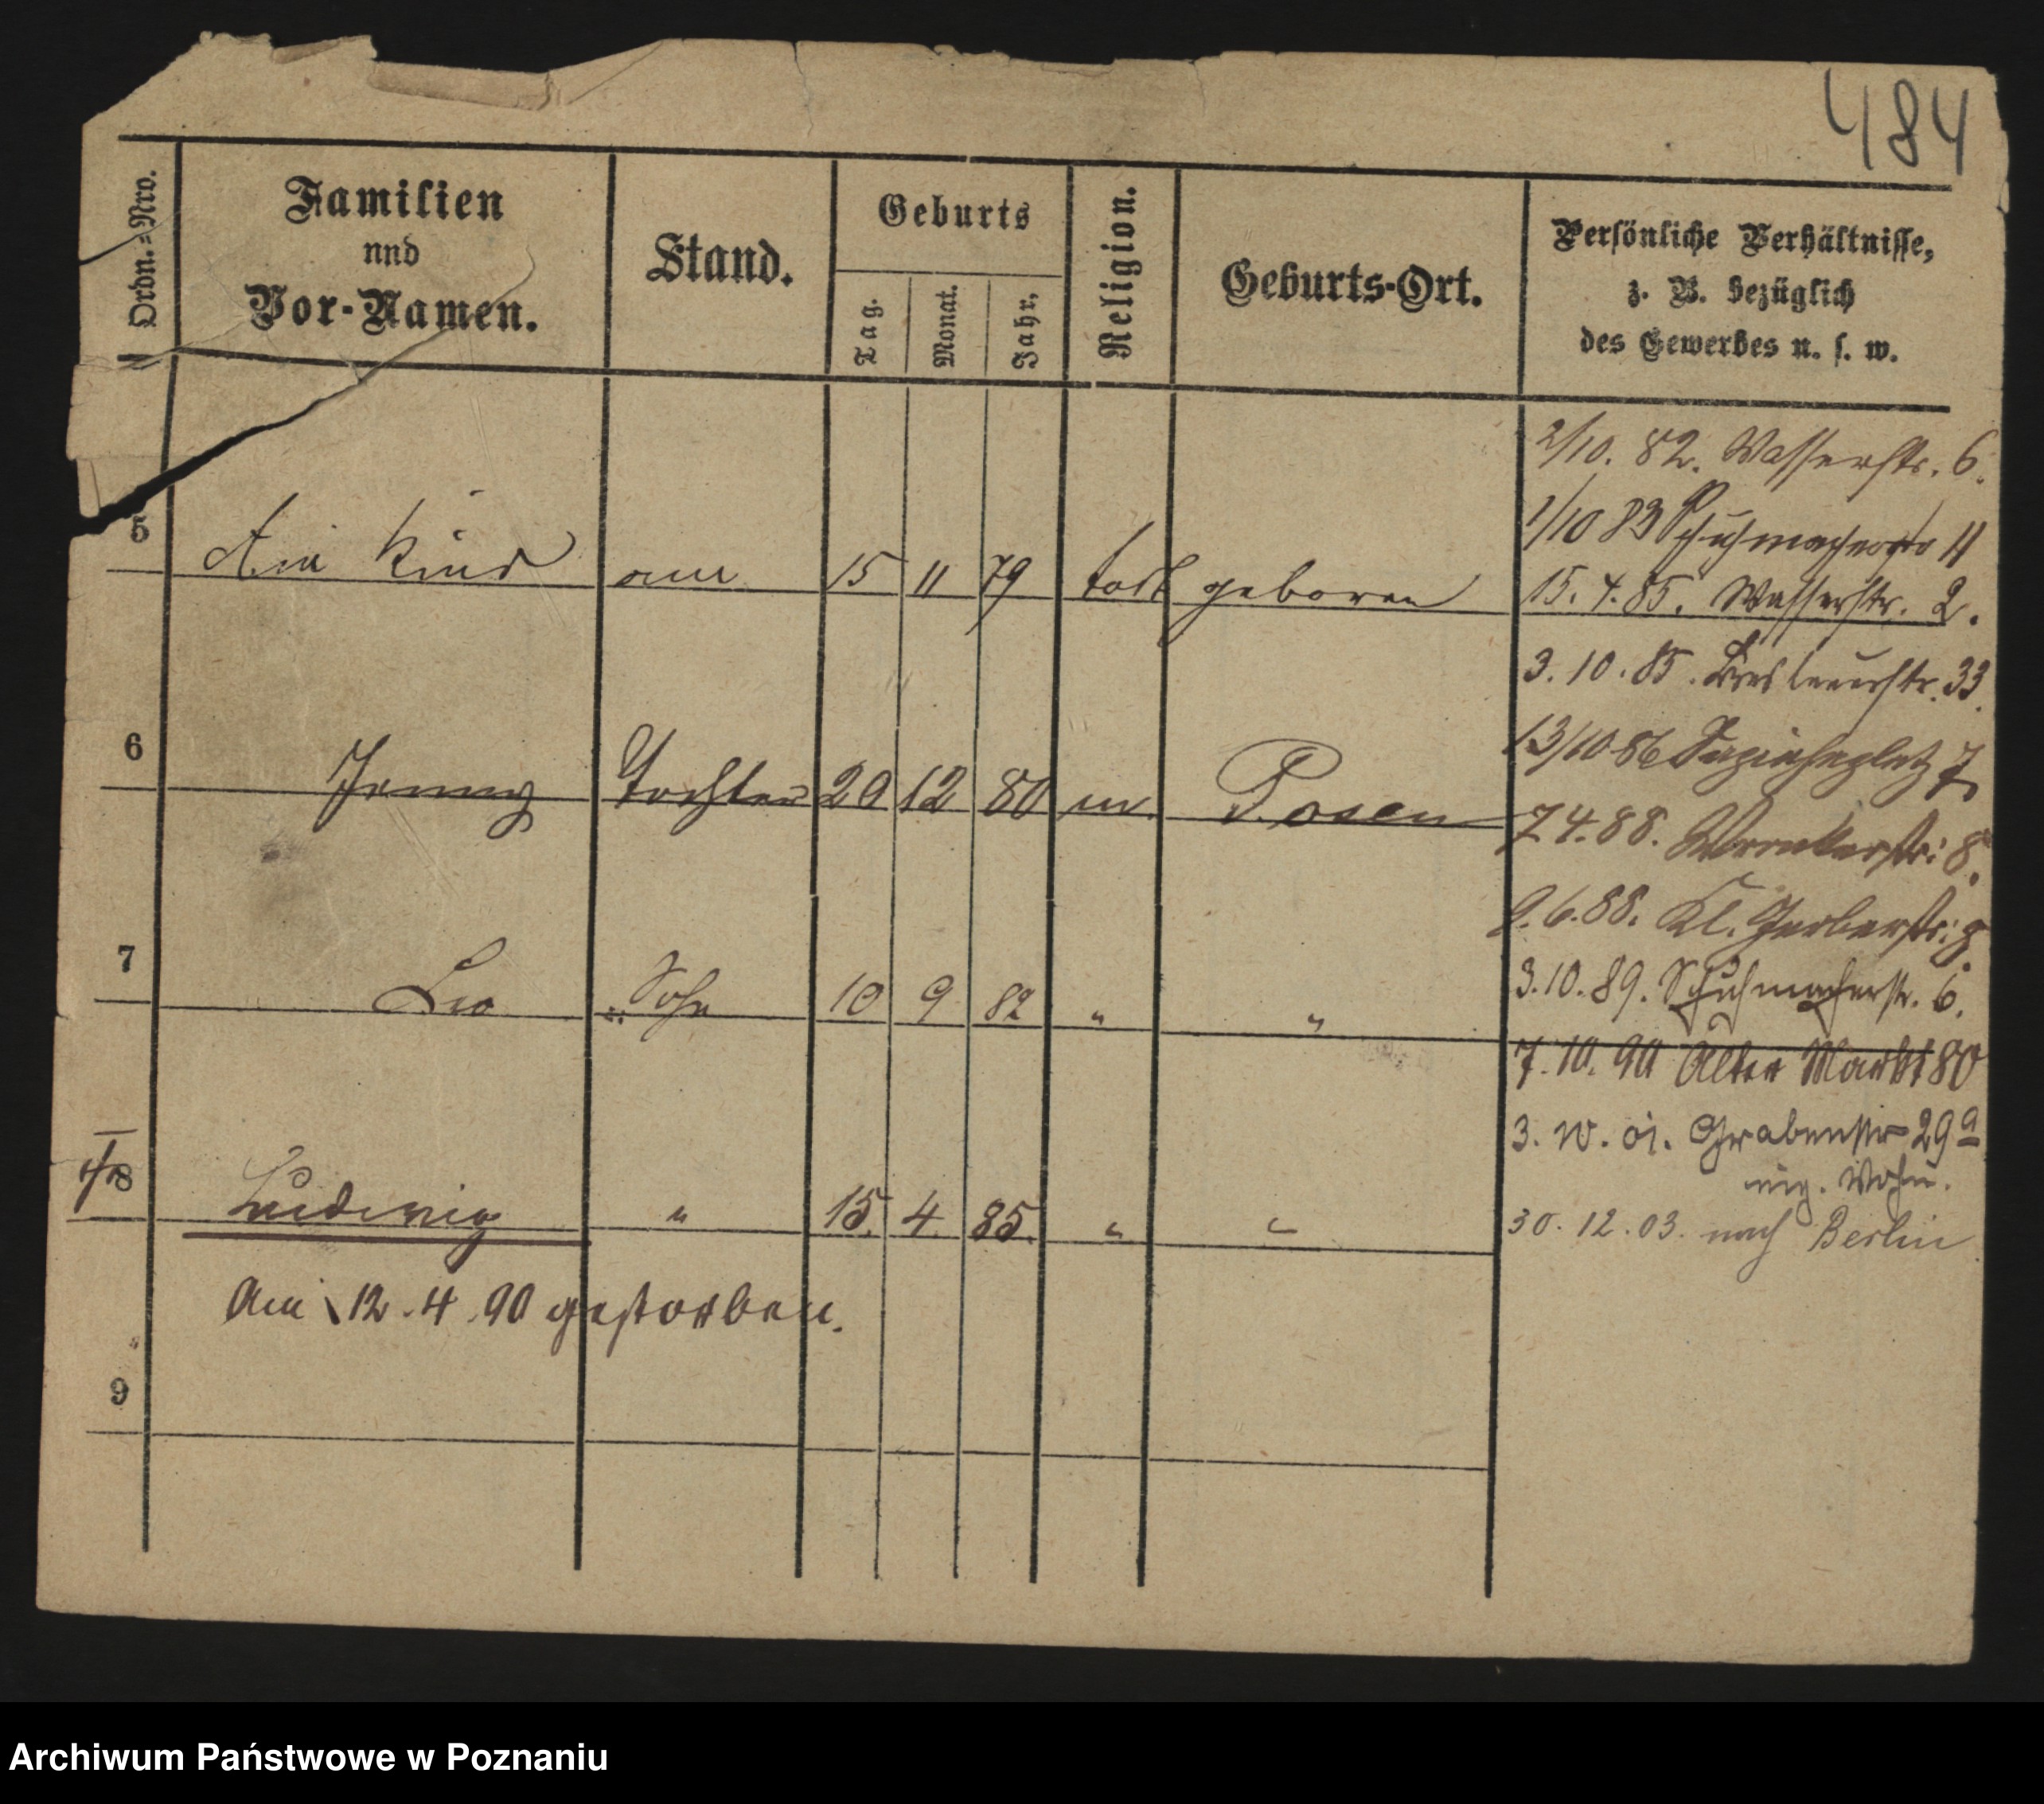 484
Ordn.=Nro.
Familien
nnd
Vor-Namen.
Stand.
Geburts
Tag.
Monat.
Jahr,
Religion.
Geburts-Ort.
Persönliche Verhältnisse,
z. B. bezüglich
des Gewerbes u. s. w.
2/10. 82. Wasserstr. 6.
1/10 83 Schuhmacherstr 11
5 Ein Kind am 15 11 79 todt geboren
15. 4. 85. Wasserstr. 2.
3. 10. 85. Breslauerstr. 33.
13/10 86 Sapiehaplatz 7
6 Jenny Tochter 20 12 80 m. Posen
7 4. 88. Wronkerstr: 8.
9. 6. 88. Kl. Gerberstr: 9
7 Leo Sohn 10 9 82 " "
3. 10. 89. Schuhmacherstr. 6.
7. 10. 90 Alter Markt 80
3. 10. 01. Grabenstr 29a
Wohn.
8 Ludwig " 15. 4. 85. " "
30. 12. 03. nach Berlin
Am 12. 4. 90 gestorben.
9
Archiwum Państwowe w Poznaniu